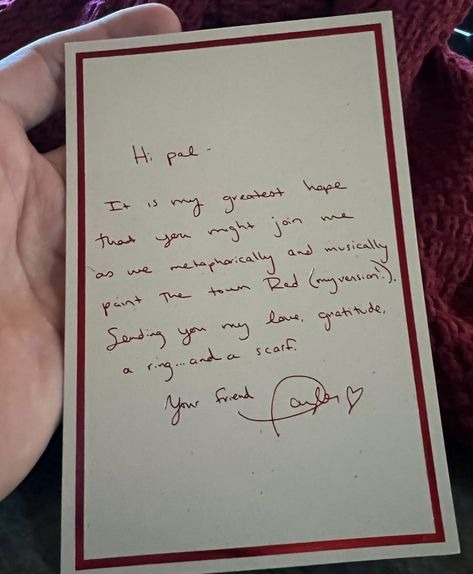 Hi pal -
It is my greatest hope
that you might join me
as we metaphorically and musically
paint the town Red (my version!).
Sending you my love, gratitude,
a ring... and a scarf.
Your friend Taylor ♡